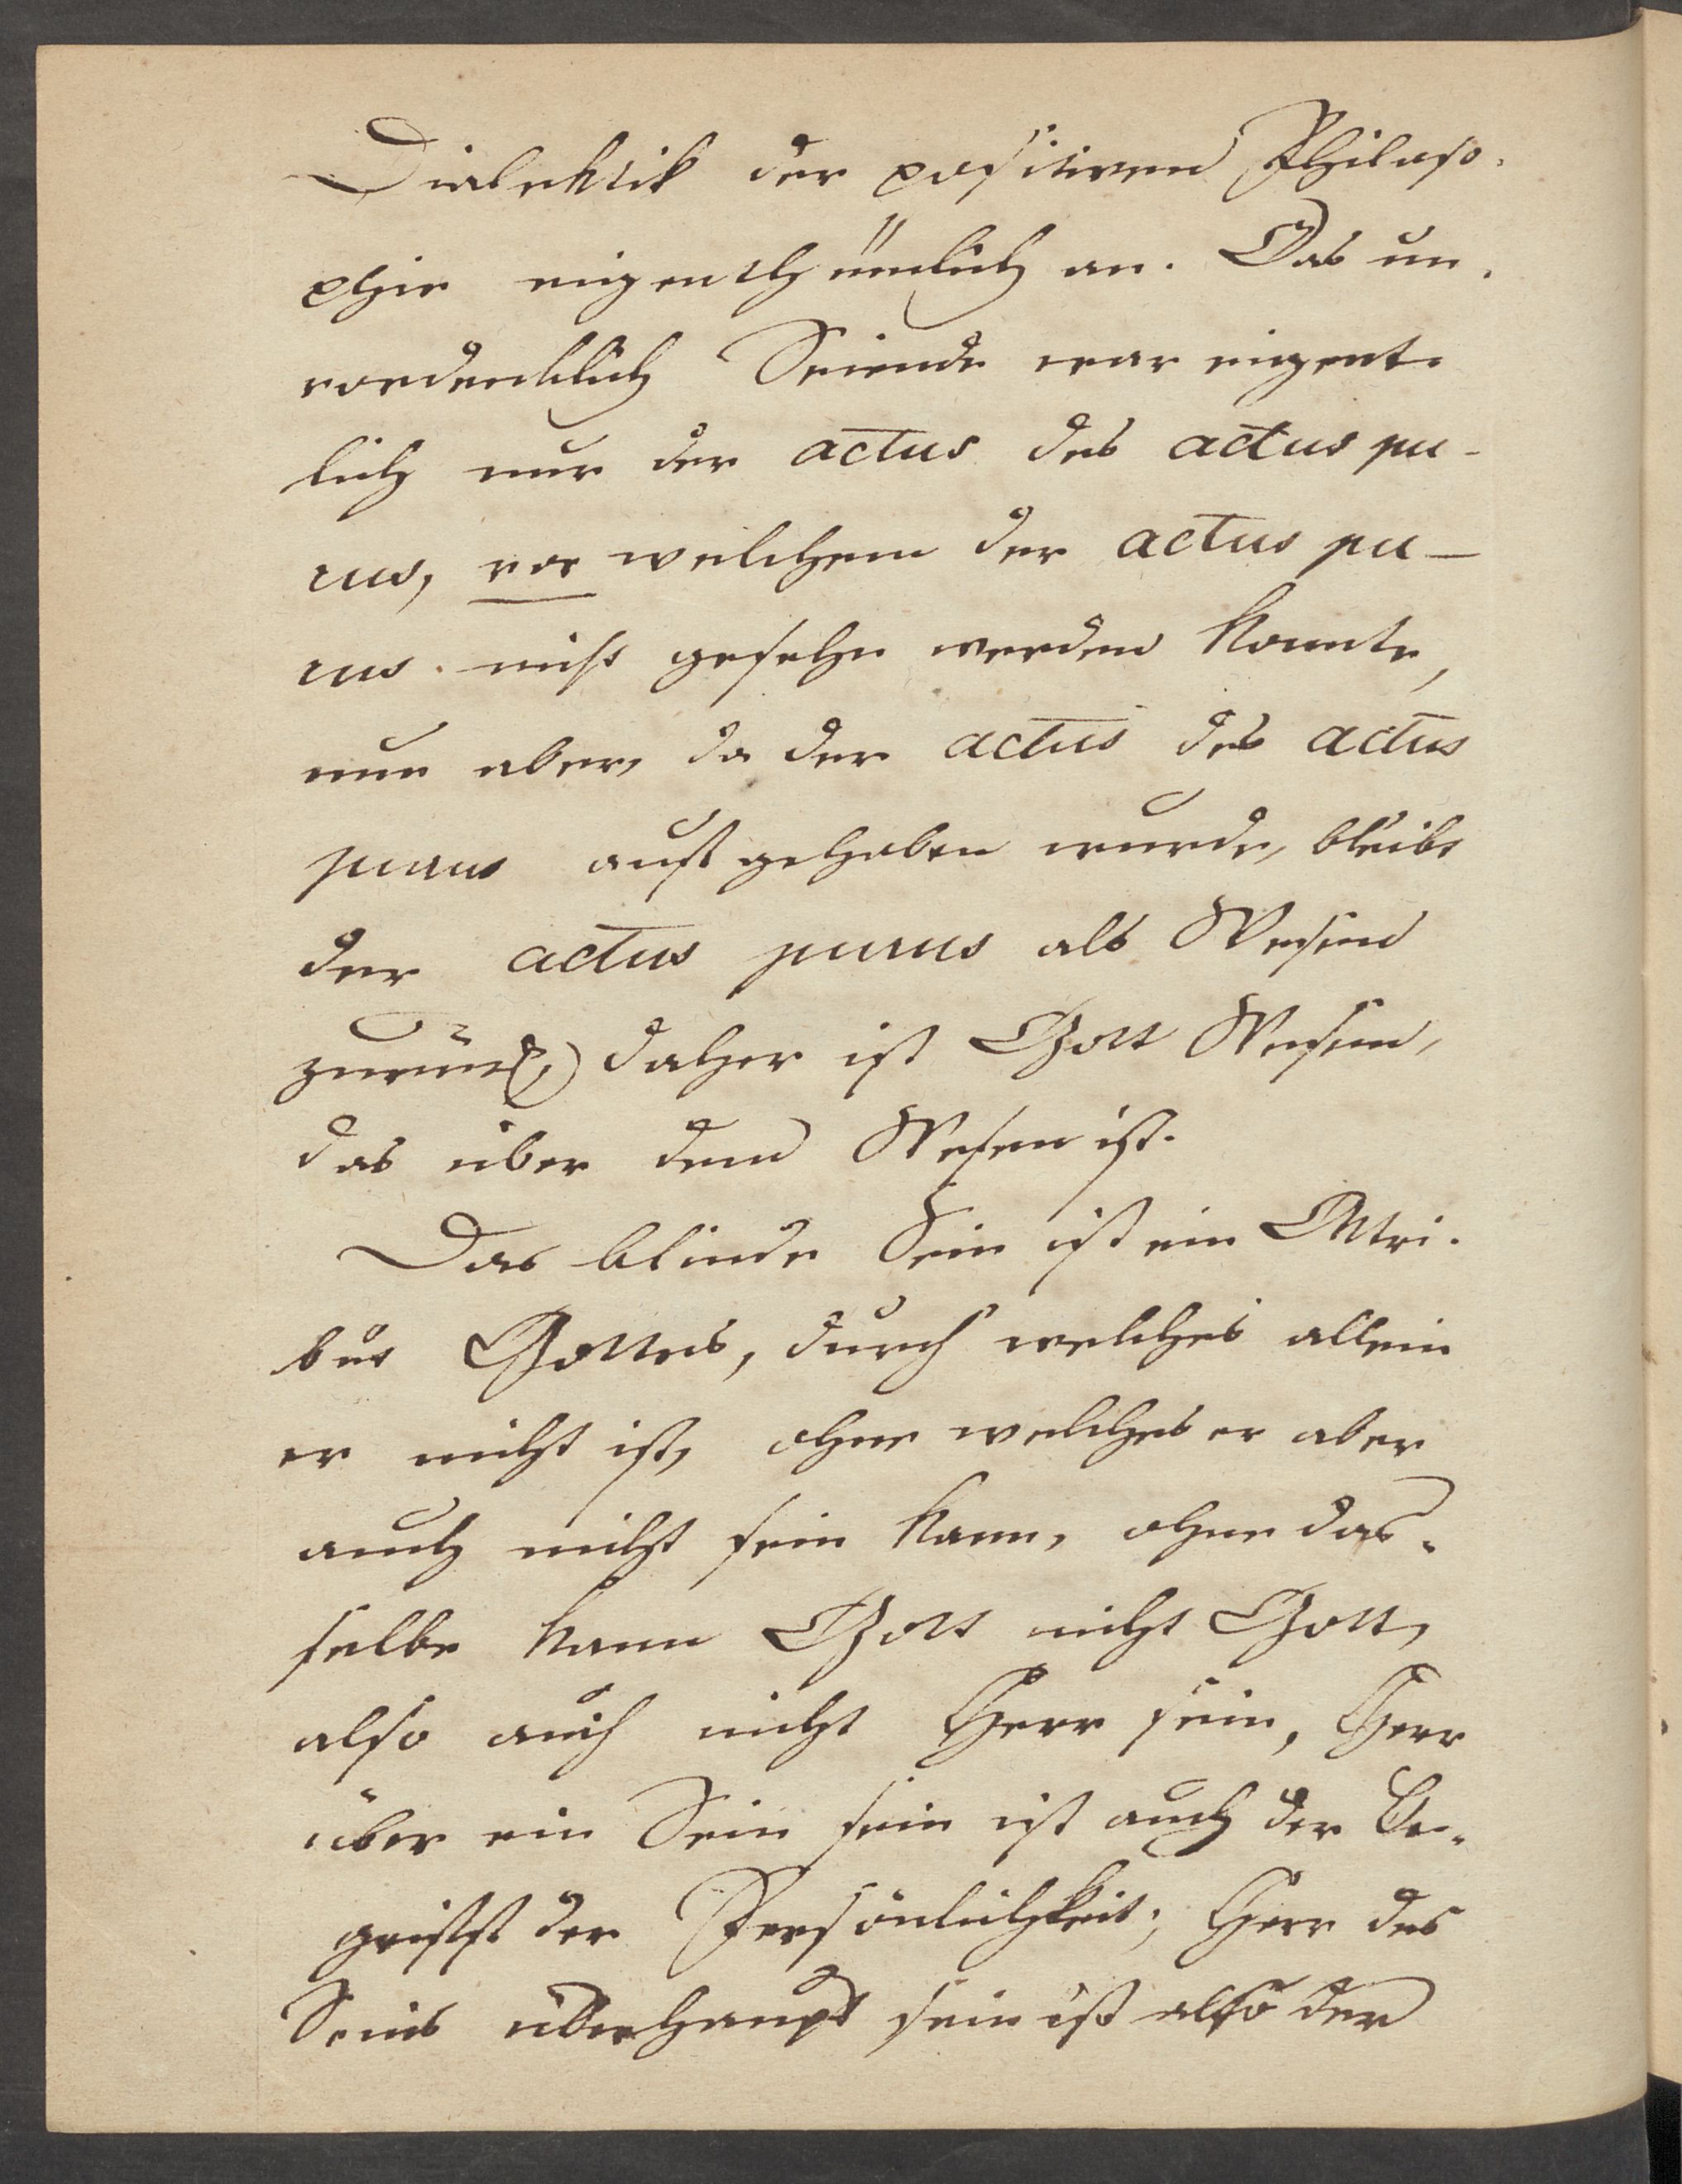 Dialektik der positiven Philoso-
phie eigenthümlich an. Das un-
vordenklich Seiende war eigent-
lich nur der actus des actus pu-
rus, vor welchem der actus pu-
rus nicht gesehn werden konnte,
nun aber, da der actus des actus
purus aufgehoben wurde, bleibt
der actus purus als Wesen
zurück, daher ist Gott Wesen,
das über dem Wesen ist.
Das blinde Sein ist ein Attri-
but Gottes, durch welches allein
er nicht ist, ohne welches er aber
auch nicht sein kann, ohne das-
selbe kann Gott nicht Gott,
also auch nicht Herr sein, Herr
über ein Sein sein ist auch der Be-
griff der Persönlichkeit; Herr des
Seins überhaupt sein ist also der